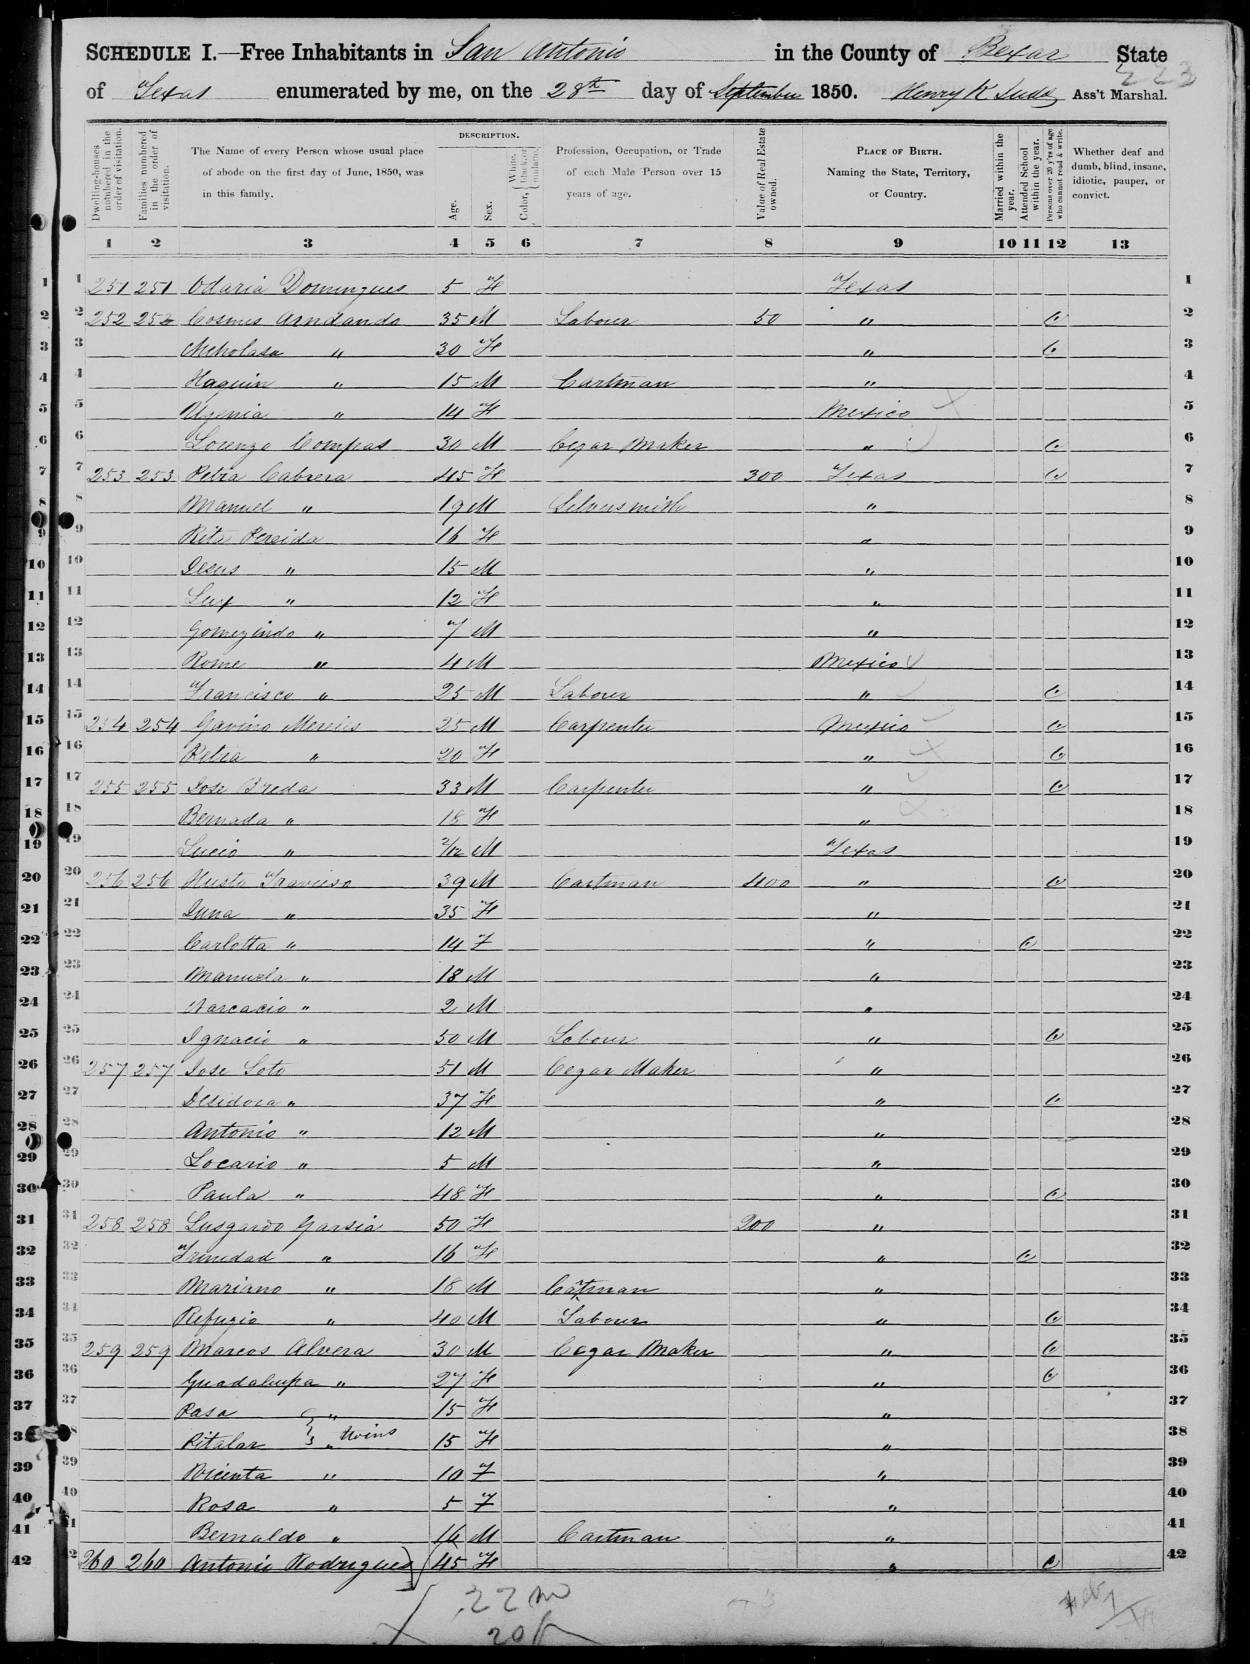 SCHEDULE I.—Free Inhabitants in San Antonio in the County of Bexar State
223
of Texas enumerated by me, on the 28th day of September 1850. Henry K Ass't Marshal.
Dwelling-houses numbered in the order of visitation.
Families numbered in the order of visitation.
The Name of every Person whose usual place of abode on the first day of June, 1850, was in this family.
DESCRIPTION.
Age.
Sex.
Color, { White, black, or mulatto.
Profession, Occupation, or Trade of each Male Person over 15 years of age.
Value of Real Estate owned.
PLACE OF BIRTH.
Naming the State, Territory, or Country.
Married within the year.
Attended School within the year.
Persons over 20 y'rs of age who cannot read & write.
Whether deaf and dumb, blind, insane, idiotic, pauper, or convict.
1 2 3 4 5 6 7 8 9 10 11 12 13
1 1 251 251 Odaria Domingues 5 F Texas 1
2 2 252 252 Cosmes Arndando 35 M Labour 50 " 2
3 3 Nicholasa " 30 F " 3
4 4 Haquin " 15 M Cartman " 4
5 5 Ugenia " 14 F Mexico 5
6 6 Lorenzo Compas 30 M Cegar Maker " 6
7 7 253 253 Petra Cabrera 45 F 300 Texas 7
8 8 Manuel " 19 M Silversmith " 8
9 9 Rita Pereida 16 F " 9
10 10 Jesus " 15 M " 10
11 11 " 12 F " 11
12 12 Gomezindo " 7 M " 12
13 13 Rome " 4 M Mexico 13
14 14 Francisco " 25 M Labour " 14
15 15 254 254 Gavino 25 M Carpenter Mexico 15
16 16 Petra " 20 F " 16
17 17 255 255 Jose Breda 33 M Carpenter " 17
18 18 Bernada " 18 F " 18
19 19 Lucio " 2/12 M Texas 19
20 20 256 256 Husto 39 M Cartman 400 " 20
21 21 Juna " 35 F " 21
22 22 Carlotta " 14 F " 22
23 23 Manuela " 18 M " 23
24 24 Narcacio " 2 M " 24
25 25 Ignacio " 50 M Labour " 25
26 26 257 257 Jose Soto 51 M Cegar Maker " 26
27 27 Desidora " 37 F " 27
28 28 Antonio " 12 M " 28
29 29 Locario " 5 M " 29
30 30 Paula " 48 F " 30
31 31 258 258 Lusgardo Garsia 50 F 200 " 31
32 32 Trinedad " 16 F " 32
33 33 Mariano " 18 M Catman " 33
34 34 Refugio " 40 M Labour " 34
35 35 259 259 Marcos Alvera 30 M Cegar Maker " 35
36 36 Guadalupa " 27 F " 36
37 37 Rasa " 15 F " 37
38 38 Pitalar " } twins 15 F " 38
39 39 Bicenta " 10 F " 39
40 40 Rosa " 5 F " 40
41 41 Bernaldo " 16 M Cartman " 41
42 42 260 260 Antonio Rodrigues 45 F " 42
22 m
20 f